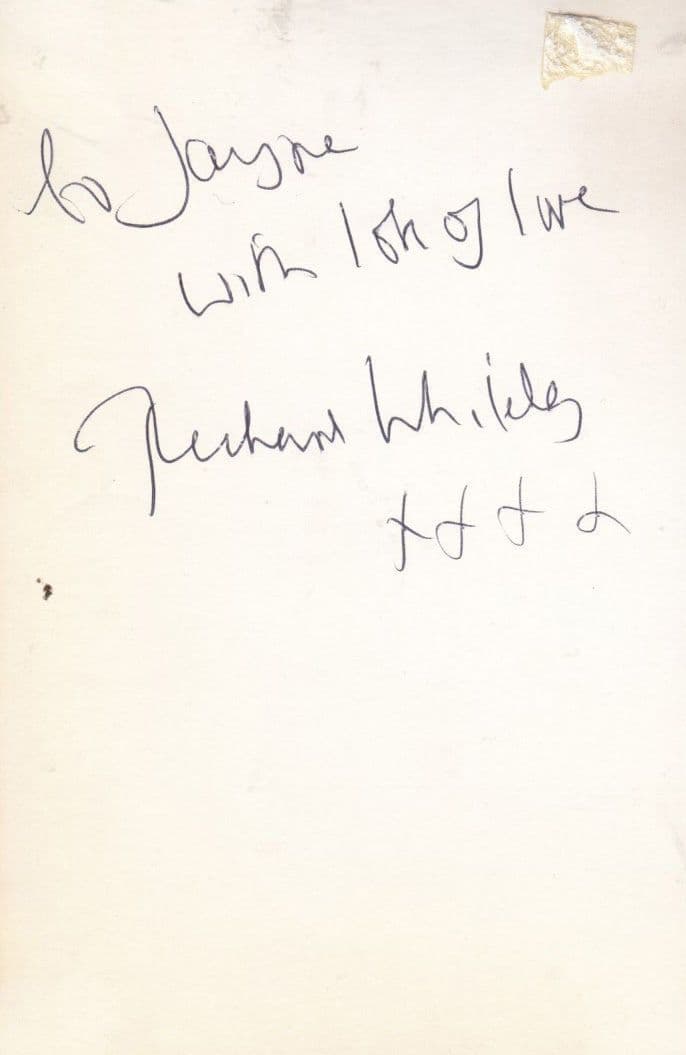 to Jayne
with lots of love
Richard Whiteley
xxxx